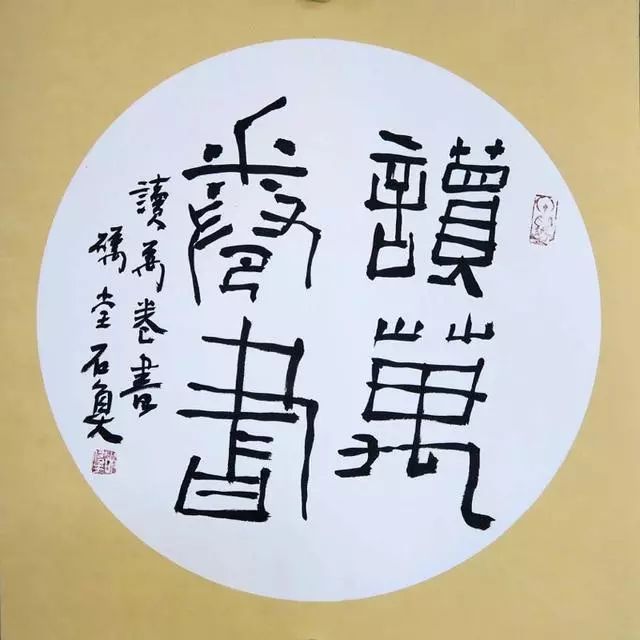 讀萬
卷書
讀萬卷書
堂石